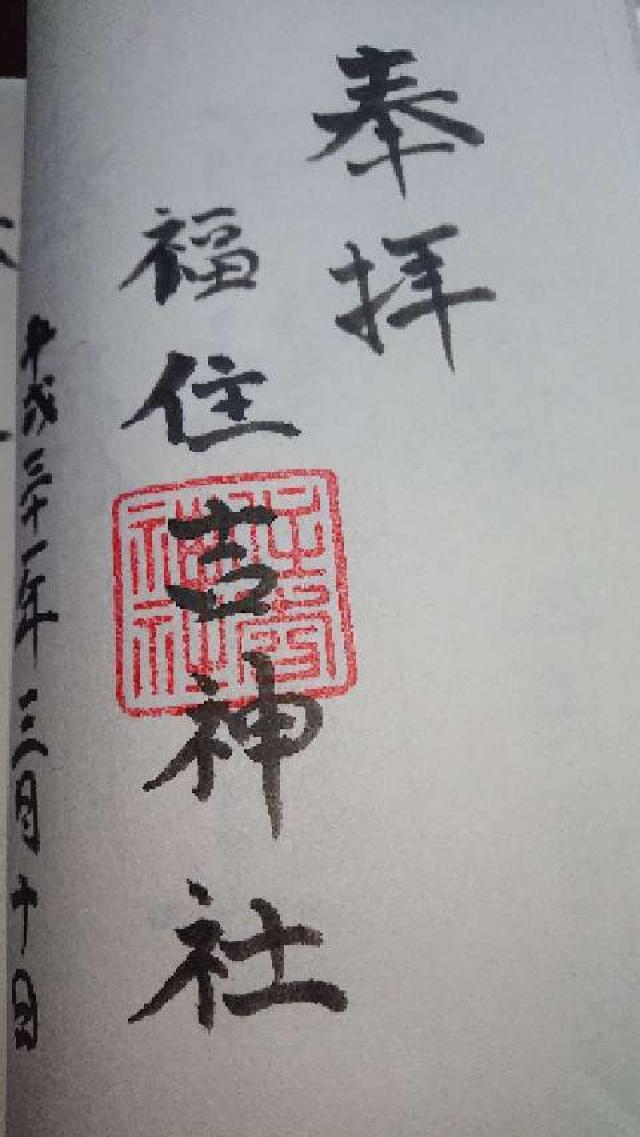 奉拝
福住吉神社
平成三十一年三月十日